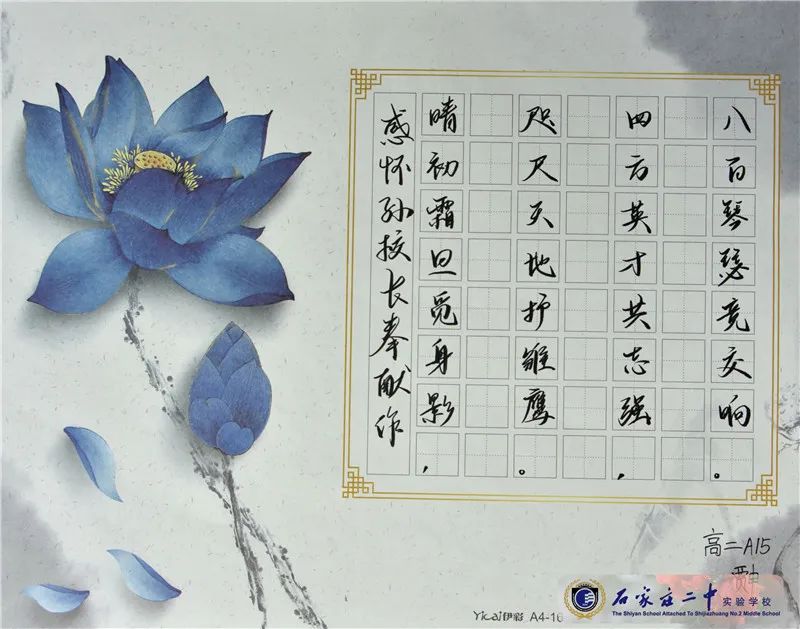 八百琴瑟竞交响。
四方英才共志强，
咫尺天地护雏鹰。
晴初霜旦觅身影，
感怀孙校长奉献作
高二A15
Yicai伊彩 A4-16
石家庄二中实验学校
The Shiyan School Attached To Shijiazhuang No.2 Middle School